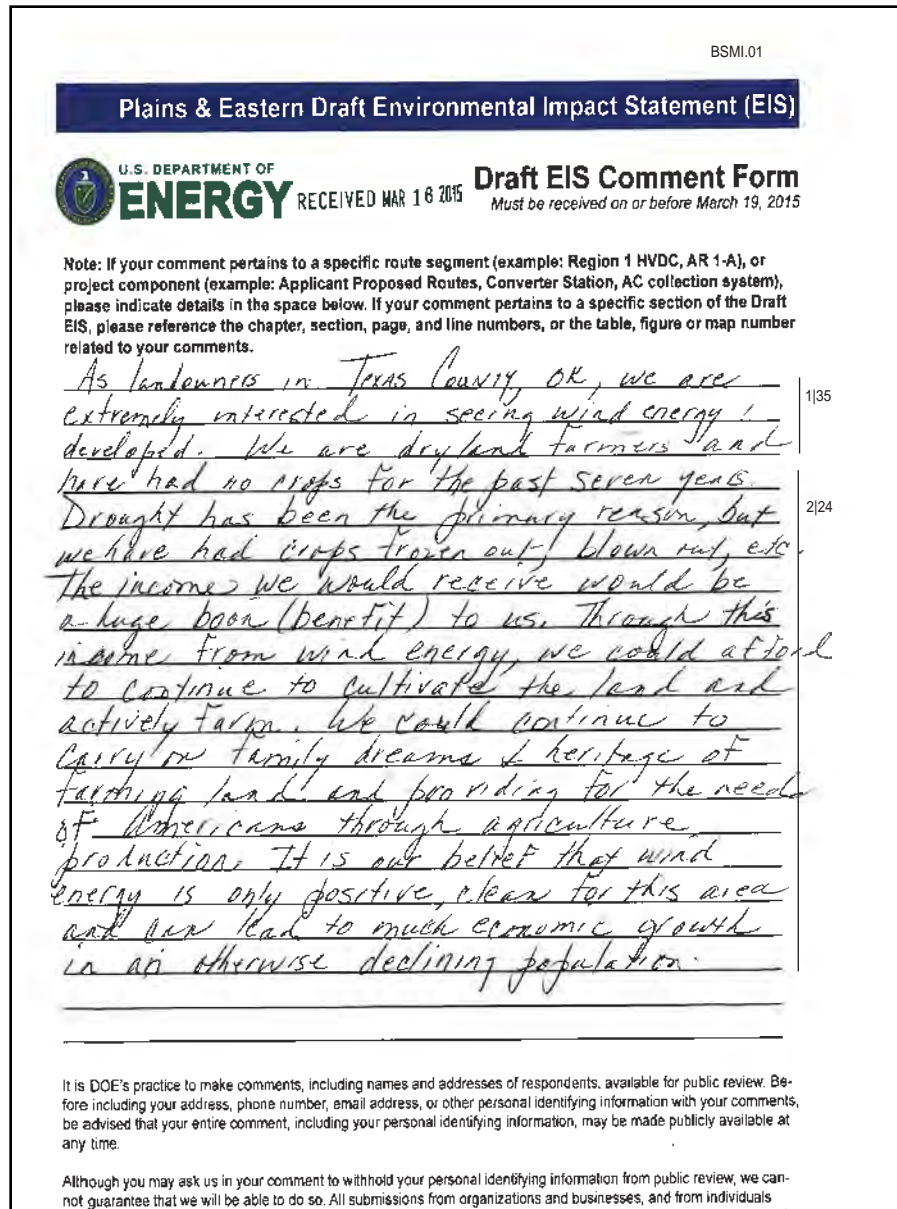 BSMI.01
Plains & Eastern Draft Environmental Impact Statement (EIS)
U.S. DEPARTMENT OF
ENERGY
RECEIVED MAR 16 2015
Draft EIS Comment Form
Must be received on or before March 19, 2015
Note: If your comment pertains to a specific route segment (example: Region 1 HVDC, AR 1-A), or
project component (example: Applicant Proposed Routes, Converter Station, AC collection system),
please indicate details in the space below. If your comment pertains to a specific section of the Draft
EIS, please reference the chapter, section, page, and line numbers, or the table, figure or map number
related to your comments.
As landowners in Texas County, OK, we are
extremely interested in seeing wind energy
1|35
developed. We are dryland farmers and
have had no crops for the past seven years.
Drought has been the primary reason, but
2|24
we have had crops frozen out, blown out, etc.
The income we would receive would be
a huge boon (benefit) to us. Through this
income from wind energy, we could afford
to continue to cultivate the land and
actively farm. We could continue to
carry on family dreams & heritage of
farming land and providing for the needs
of Americans through agriculture
production. It is our belief that wind
energy is only positive, clean for this area
and can lead to much economic growth
in an otherwise declining population.
It is DOE's practice to make comments, including names and addresses of respondents, available for public review. Be-
fore including your address, phone number, email address, or other personal identifying information with your comments,
be advised that your entire comment, including your personal identifying information, may be made publicly available at
any time.
Although you may ask us in your comment to withhold your personal identifying information from public review, we can-
not guarantee that we will be able to do so. All submissions from organizations and businesses, and from individuals